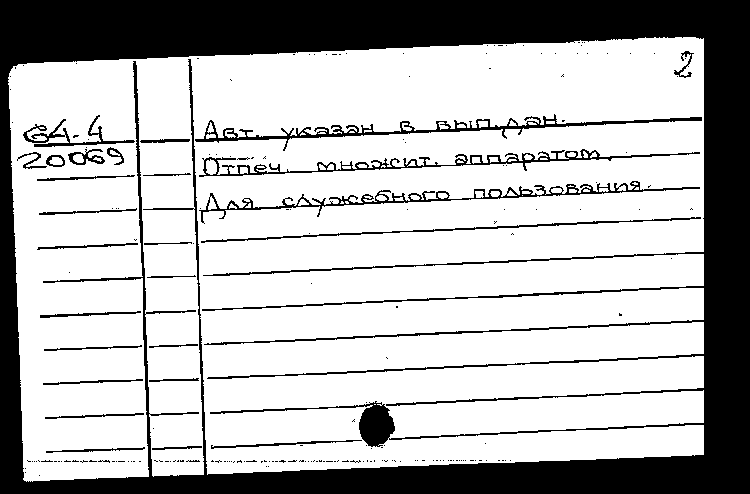 2
Г4-4 Авт. указан в вып. дан.
20069 Отпеч. множит. аппаратом.
Для служебного пользования.